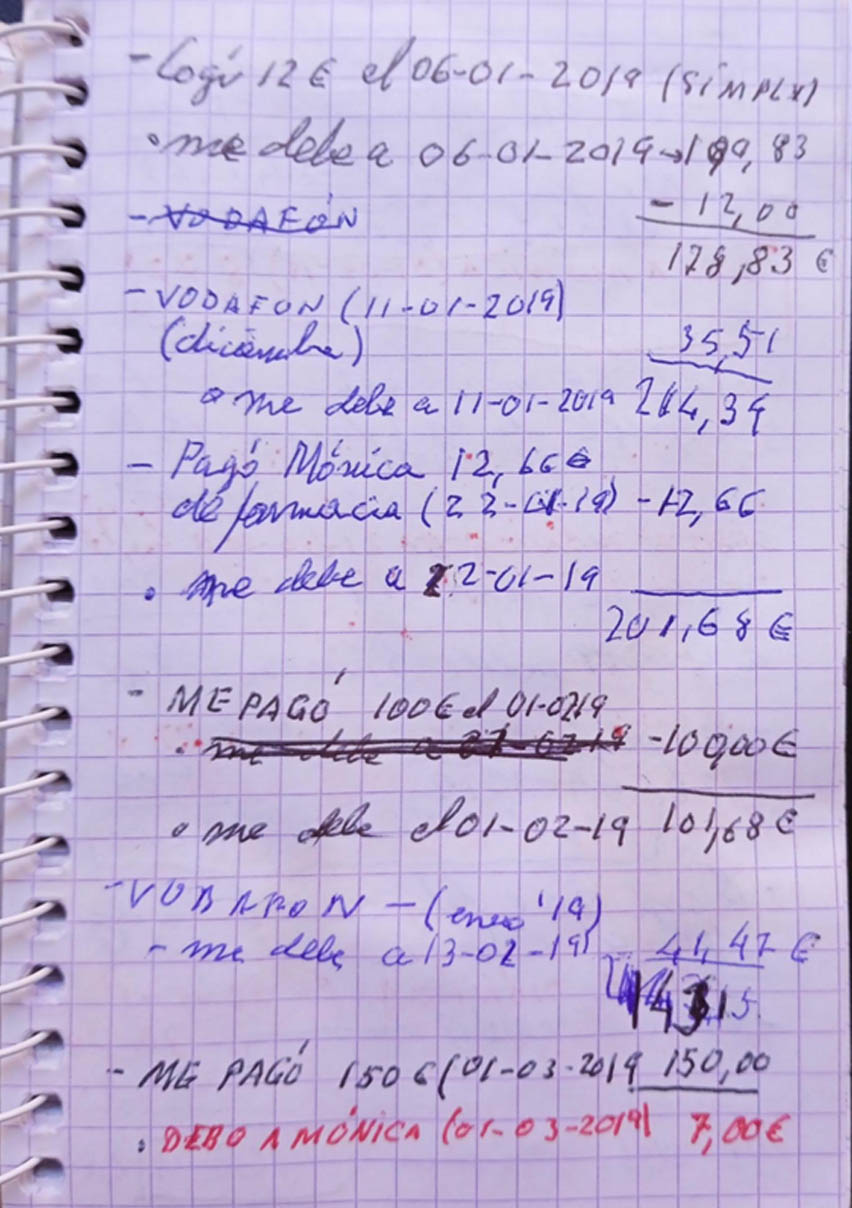 - Cogí 12€ el 06-01-2019 (SIMPLY)
• me debe a 06-01-2019→199,83
- 12,00
- VODAFÓN
178,83 €
- VODAFON (11-01-2019)
35,51
(diciembre)
• me debe a 11-01-2019 214,34
- Pagó Mónica 12,66€
de farmacia (22-01-19) -12,66
• me debe a 22-01-19
201,68€
- ME PAGÓ 100€ el 01-0219
• me debe a 01-0219 -100,00€
• me debe el 01-02-19 101,68€
- VODAFON - (enero '19)
- me debe a 13-02-19) 41,47 €
143,15
- ME PAGÓ 150€ (01-03-2019 150,00
• DEBO A MÓNICA (01-03-2019) 7,00€